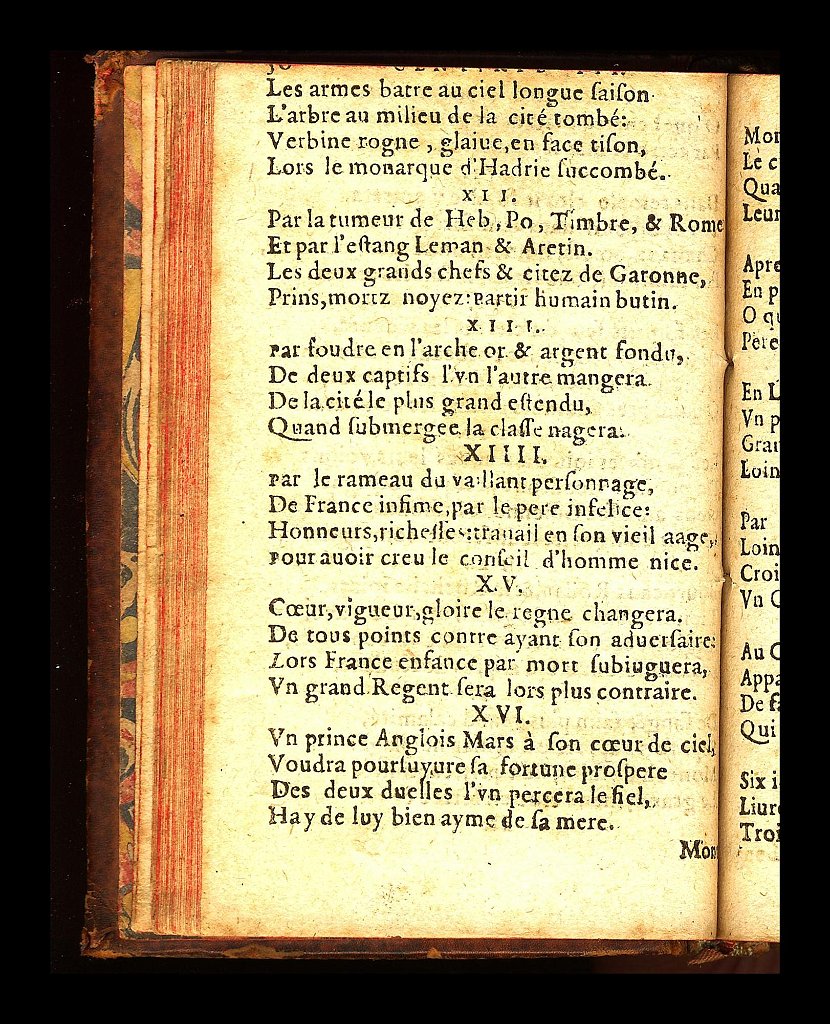 Les armes batre au ciel longue ſaiſon
L'arbre au milieu de la cité tombé:
Verbine rogne, glaiue, en face tiſon,
Lors le monarque d'Hadrie ſuccombé.
XII.
Par la tumeur de Heb, Po, Timbre, & Rome
Et par l'eſtang Leman & Aretin.
Les deux grands chefs & citez de Garonne,
Prins, mortz noyez: partir humain butin.
XIII.
Par foudre en l'arche or & argent fondu,
De deux captifs l'vn l'autre mangera.
De la cité le plus grand eſtendu,
Quand ſubmergee la claſſe nagera.
XIIII.
Par le rameau du vaillant perſonnage,
De France infime, par le pere infelice:
Honneurs, richeſſes: trauail en ſon vieil aage,
Pour auoir creu le conſeil d'homme nice.
XV.
Cœur, vigueur, gloire le regne changera.
De tous points contre ayant ſon aduerſaire:
Lors France enfance par mort ſubiuguera,
Vn grand Regent ſera lors plus contraire.
XVI.
Vn prince Anglois Mars à ſon cœur de ciel,
Voudra pourſuyure ſa fortune proſpere
Des deux duelles l'vn percera le fiel,
Hay de luy bien ayme de ſa mere.
Mon
Mon
Le c
Qua
Leur
Apre
En p
O qu
Pere
En L
Vn p
Gran
Loin
Par
Loin
Croi
Vn C
Au C
Appa
De fa
Qui
Six i
Liure
Troi